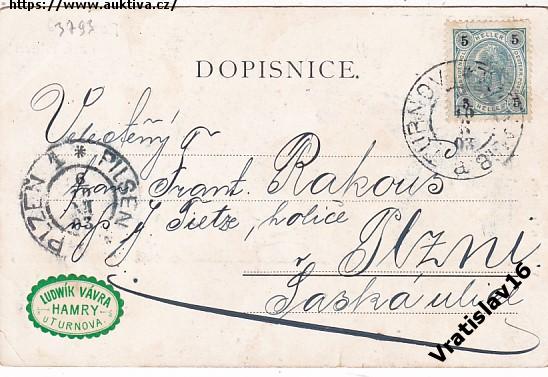 https://www.auktiva.cz/
3793
DOPISNICE.
5 HELLER 5
5 HELLER 5
TURNOV
PLZEŇ 1 * PILSEN
6
03
Velectěný
pan Frant. Rakous
u p. J. Tietze, holiče
Plzni
Saská ulice
LUDVÍK VÁVRA
HAMRY
u TURNOVA.
Vratislav16